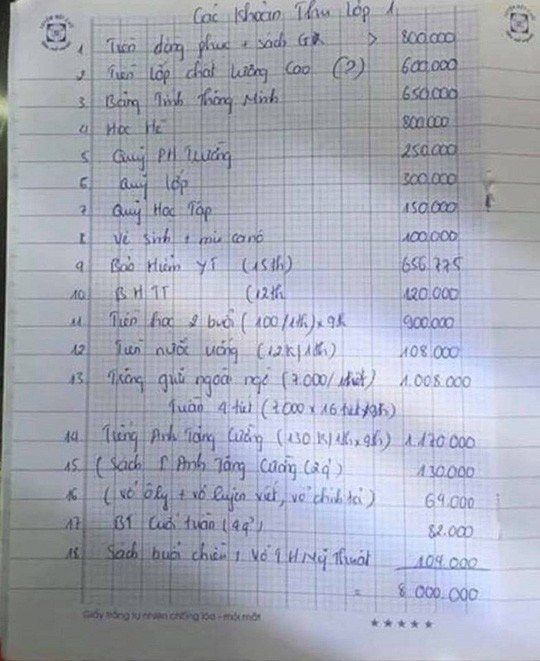 Các khoản Thu lớp 1
1 Tiền đồng phục + sách GK > 800.000
2 Tiền lớp chất lượng cao (?) 600.000
3 Bảng Tính Thông Minh 650.000
4 Học Hè 800.000
5 Quỹ PH Trường 250.000
6 Quỹ lớp 300.000
7 Quỹ Học Tập 150.000
8 Vệ sinh + mùa 100.000
9 Bảo Hiểm YT (15th) 656.775
10 BHTT (12th 120.000
11 Tiền học 2 buổi (100/1th) x 9th 900.000
12 Tiền nước uống (12K/1th) 108.000
13 Trông giữ ngoài giờ (7.000/1tiết) 1.008.000
Tuần 4 tiết (7.000 x 16 tiết/9th)
14 Tiếng Anh Tăng Cường (130K/1th x 9th) 1.170.000
15 (Sách T Anh Tăng Cường (2q) 130.000
16 (vở ôly + vở luyện viết, vở chính tả) 69.000
17 BT Cuối tuần (4q) 82.000
18 Sách buổi chiều, vở TH Mỹ Thuật 104.000
= 8.000.000
Giấy trắng tự nhiên chống lóa - mỏi mắt